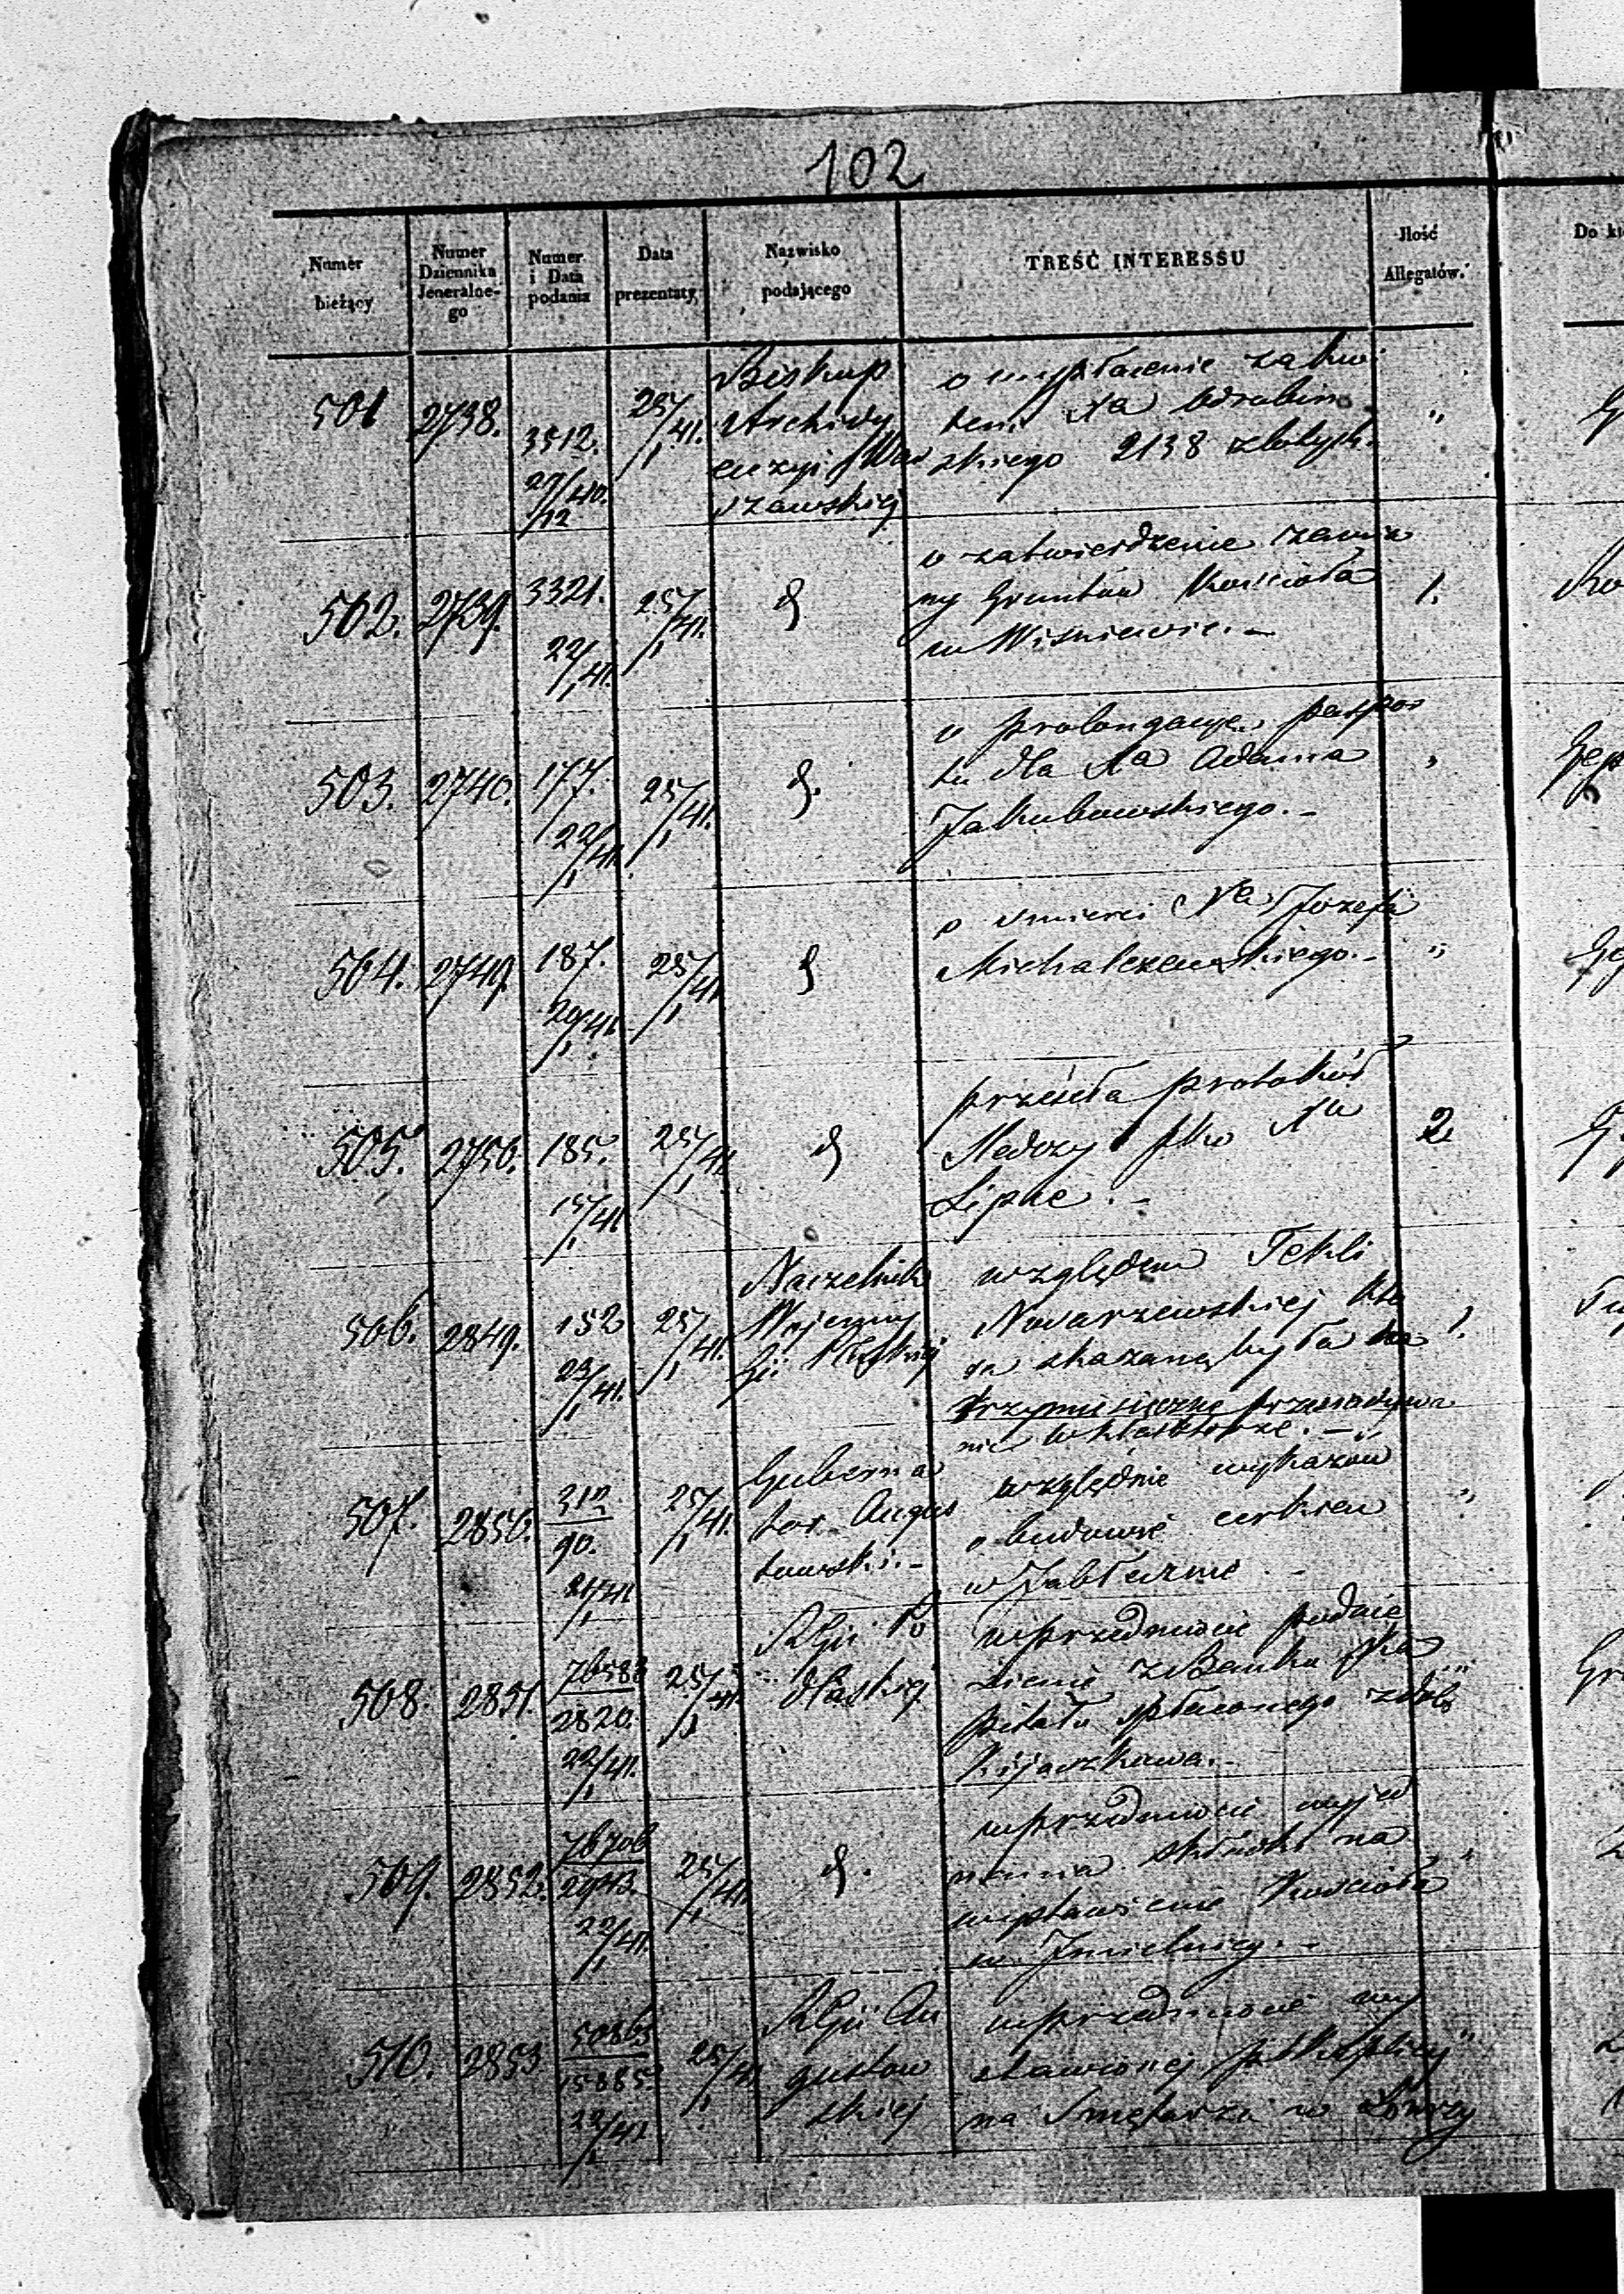 102
Numer bieżący
Numer Dziennika Jeneralne-go
Numer i Data podania
Data prezentaty
Nazwisko podającego
TREŚĆ INTERESSU
Jlość Allegatów.
Do
501 2738. 3512. 27/12 40. 25/1 41.
Biskup
Archidy
ecezyi War
szawskiej
o wypłacenie za kwi
tem Xa Odrobin
skiego 2138 złotych.
"
502. 2739. 3321. 22/1 41. 25/1 41. d
o zatwierdzenie zamia
ny Gruntów Kościoła
w Wiśniewie. -
1.
503. 2740. 177. 22/1 41. 25/1 41. d.
o prolongacyę paszpor
tu dla Xa Adama
Jakubowskiego. -
"
504. 2749. 187. 20/1 41. 25/1 41. d
o śmierci Xa Jozefa
Michalczewskiego. -
"
505. 2750. 185. 15/1 41. 25/1 41. d
przeseła protokół
pko Xu
Lipke. -
2.
506. 2849. 152 23/1 41. 25/1 41.
Naczelnik
Wojenny
Gii Płockiej
względem Tekli
Nowarzewskiej któ
ra skazaną była na
trzymiesięczne przesiadywa
nie w klasztorze. -
1.
507. 2850. 312/90. 21/1 41 25/1 41.
Guberna
tor Augus
towski. -
względnie wykazów
o budowie cerkiew
w Jabłecznie. -
"
508. 2851. 76583/2820. 22/1 41. 25/1 41.
RGii Po
dlaskiej
w przedmiocie podnie
sienia z Banku Ka
pitału spłaconego z dóbr
Kijaszkowa. -
"
509. 2852. 76706/2943. 22/1 41. 25/1 41. d.
w przedmiocie wyjed
nania składki na
wystawienie Kościoła
w Jmielnicy. -
"
510. 2853 50863/15885. 22/1 41 25/1 41
RGii Au
gustow
skiej
w przedmiocie wy
stawionej Kaplicy
na Smętarzu w Łomży
"